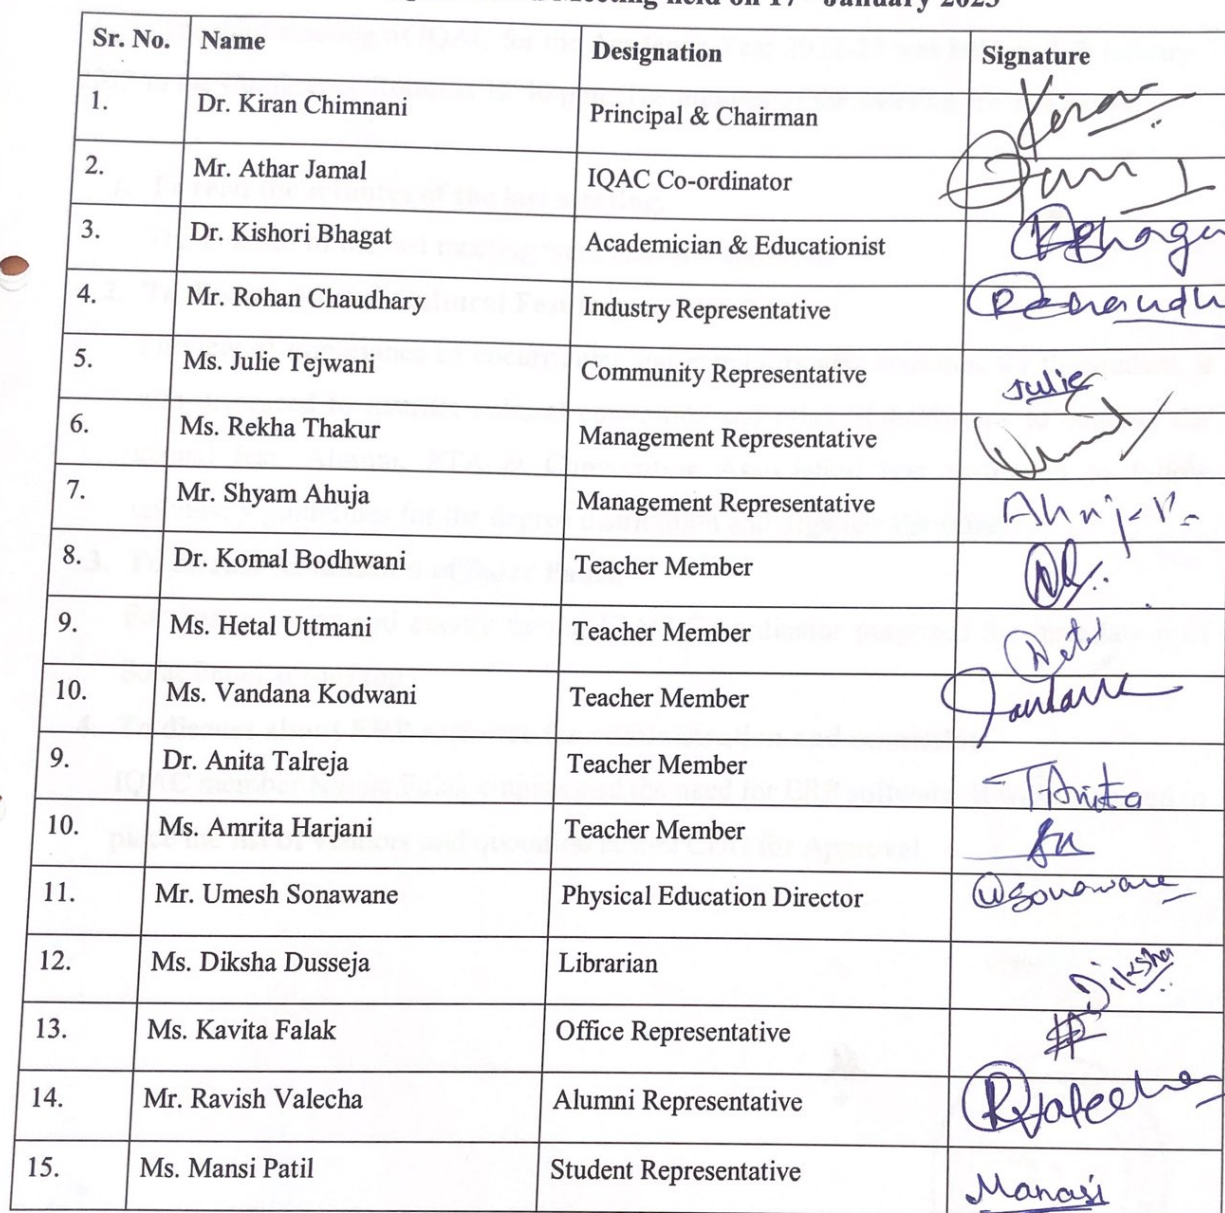 Meeting held on 17th January 2023
Sr. No. Name Designation Signature
1. Dr. Kiran Chimnani Principal & Chairman Kiran
2. Mr. Athar Jamal IQAC Co-ordinator
3. Dr. Kishori Bhagat Academician & Educationist KBhagat
4. Mr. Rohan Chaudhary Industry Representative
5. Ms. Julie Tejwani Community Representative Julie
6. Ms. Rekha Thakur Management Representative
7. Mr. Shyam Ahuja Management Representative
8. Dr. Komal Bodhwani Teacher Member
9. Ms. Hetal Uttmani Teacher Member Hetal
10. Ms. Vandana Kodwani Teacher Member
9. Dr. Anita Talreja Teacher Member TAnita
10. Ms. Amrita Harjani Teacher Member
11. Mr. Umesh Sonawane Physical Education Director USonawane
12. Ms. Diksha Dusseja Librarian Diksha
13. Ms. Kavita Falak Office Representative
14. Mr. Ravish Valecha Alumni Representative RValecha
15. Ms. Mansi Patil Student Representative Manasi